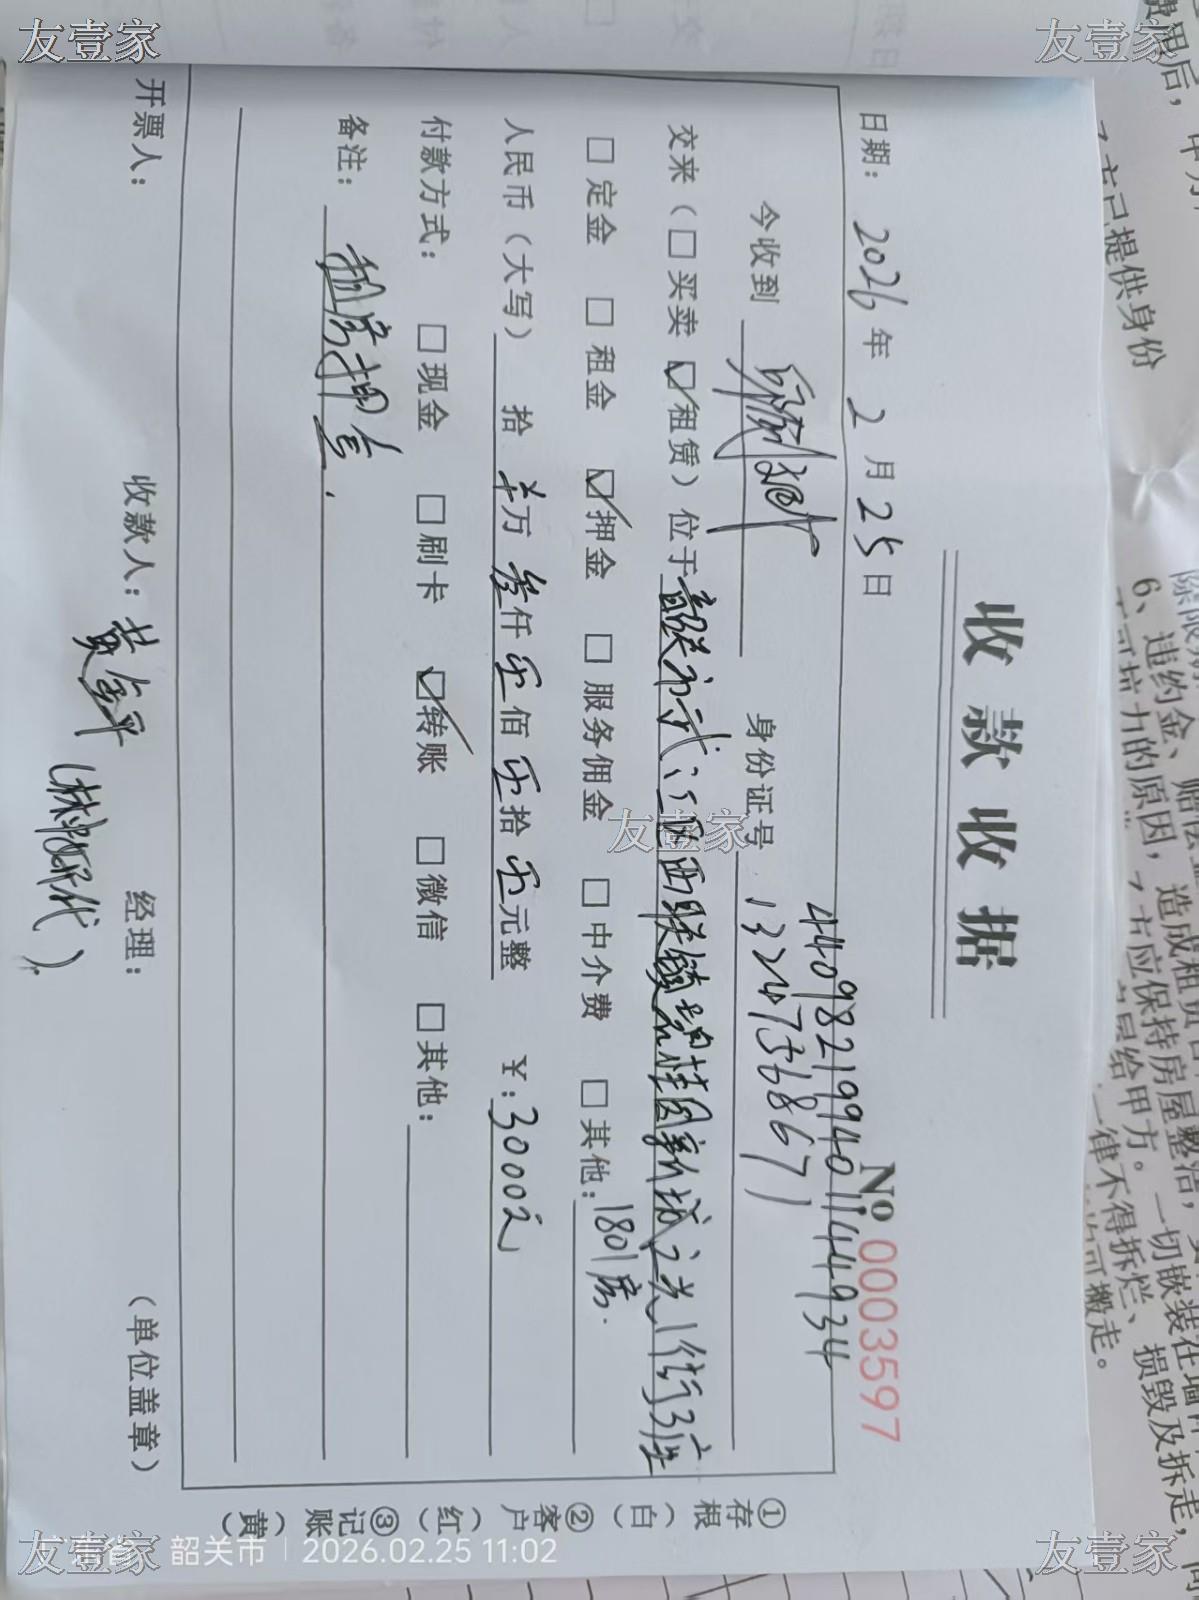 收款收据
No 0003597
日期：2026年2月25日
440982199401144934
今收到 身份证号 13247356867
交来（□买卖 ☑租赁）位于韶关市武江区西联镇碧桂园新城之光1街3座
1801房.
□定金 □租金 ☑押金 □服务佣金 □中介费 □其他：
人民币（大写） 拾 零万 叁仟 零佰 零拾 零元整 ￥：3000元
付款方式： □现金 □刷卡 ☑转账 □微信 □其他：
备注： 租房押金.
开票人： 收款人：黄金平 经理： （单位盖章）
①存根（白）②客户（红）③记账（黄）
友壹家
友壹家
友壹家
友壹家
友壹家
广东省 韶关市 | 2026.02.25 11:02
6、违约金、赔偿金
造成租赁
应保持房屋整洁，
一切嵌装在墙
一律不得拆烂、损毁及拆走，
可搬走。
已提供身份